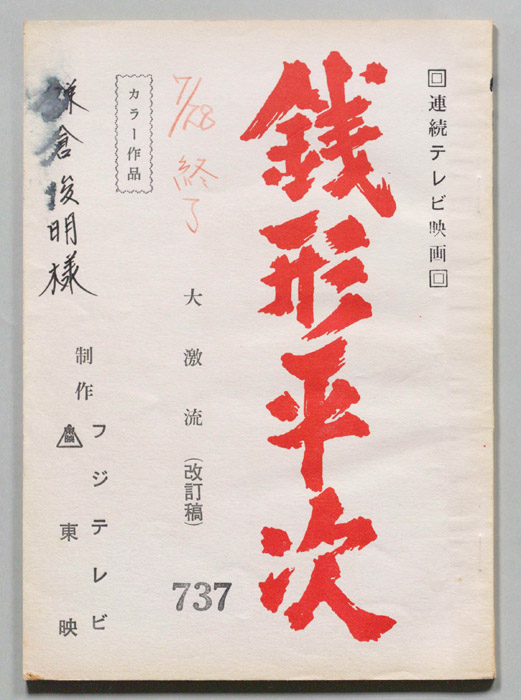 回連続テレビ映画回
銭形平次
7/28 終了
大激流(改訂稿)
737
カラー作品
制作
フジテレビ
東映
鎌倉俊明様